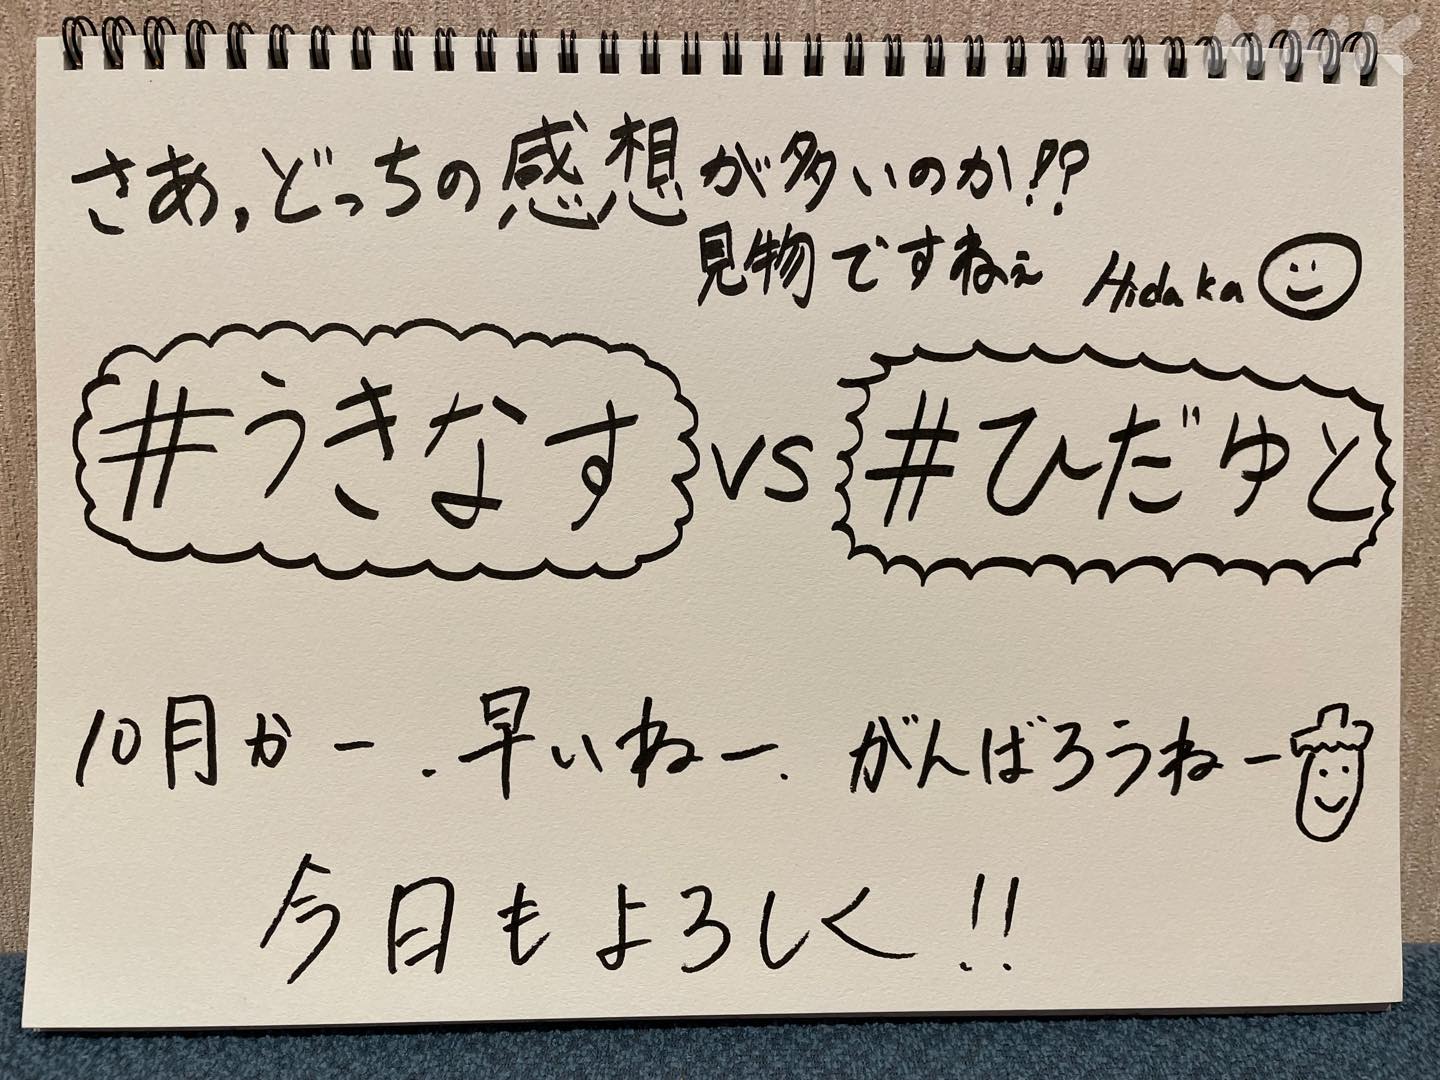 NHK
さあ,どっちの感想が多いのか!?
見物ですねぇ Hidaka
#うきなす vs #ひだゆと
10月かー.早いねー.がんばろうねー
今日もよろしく!!